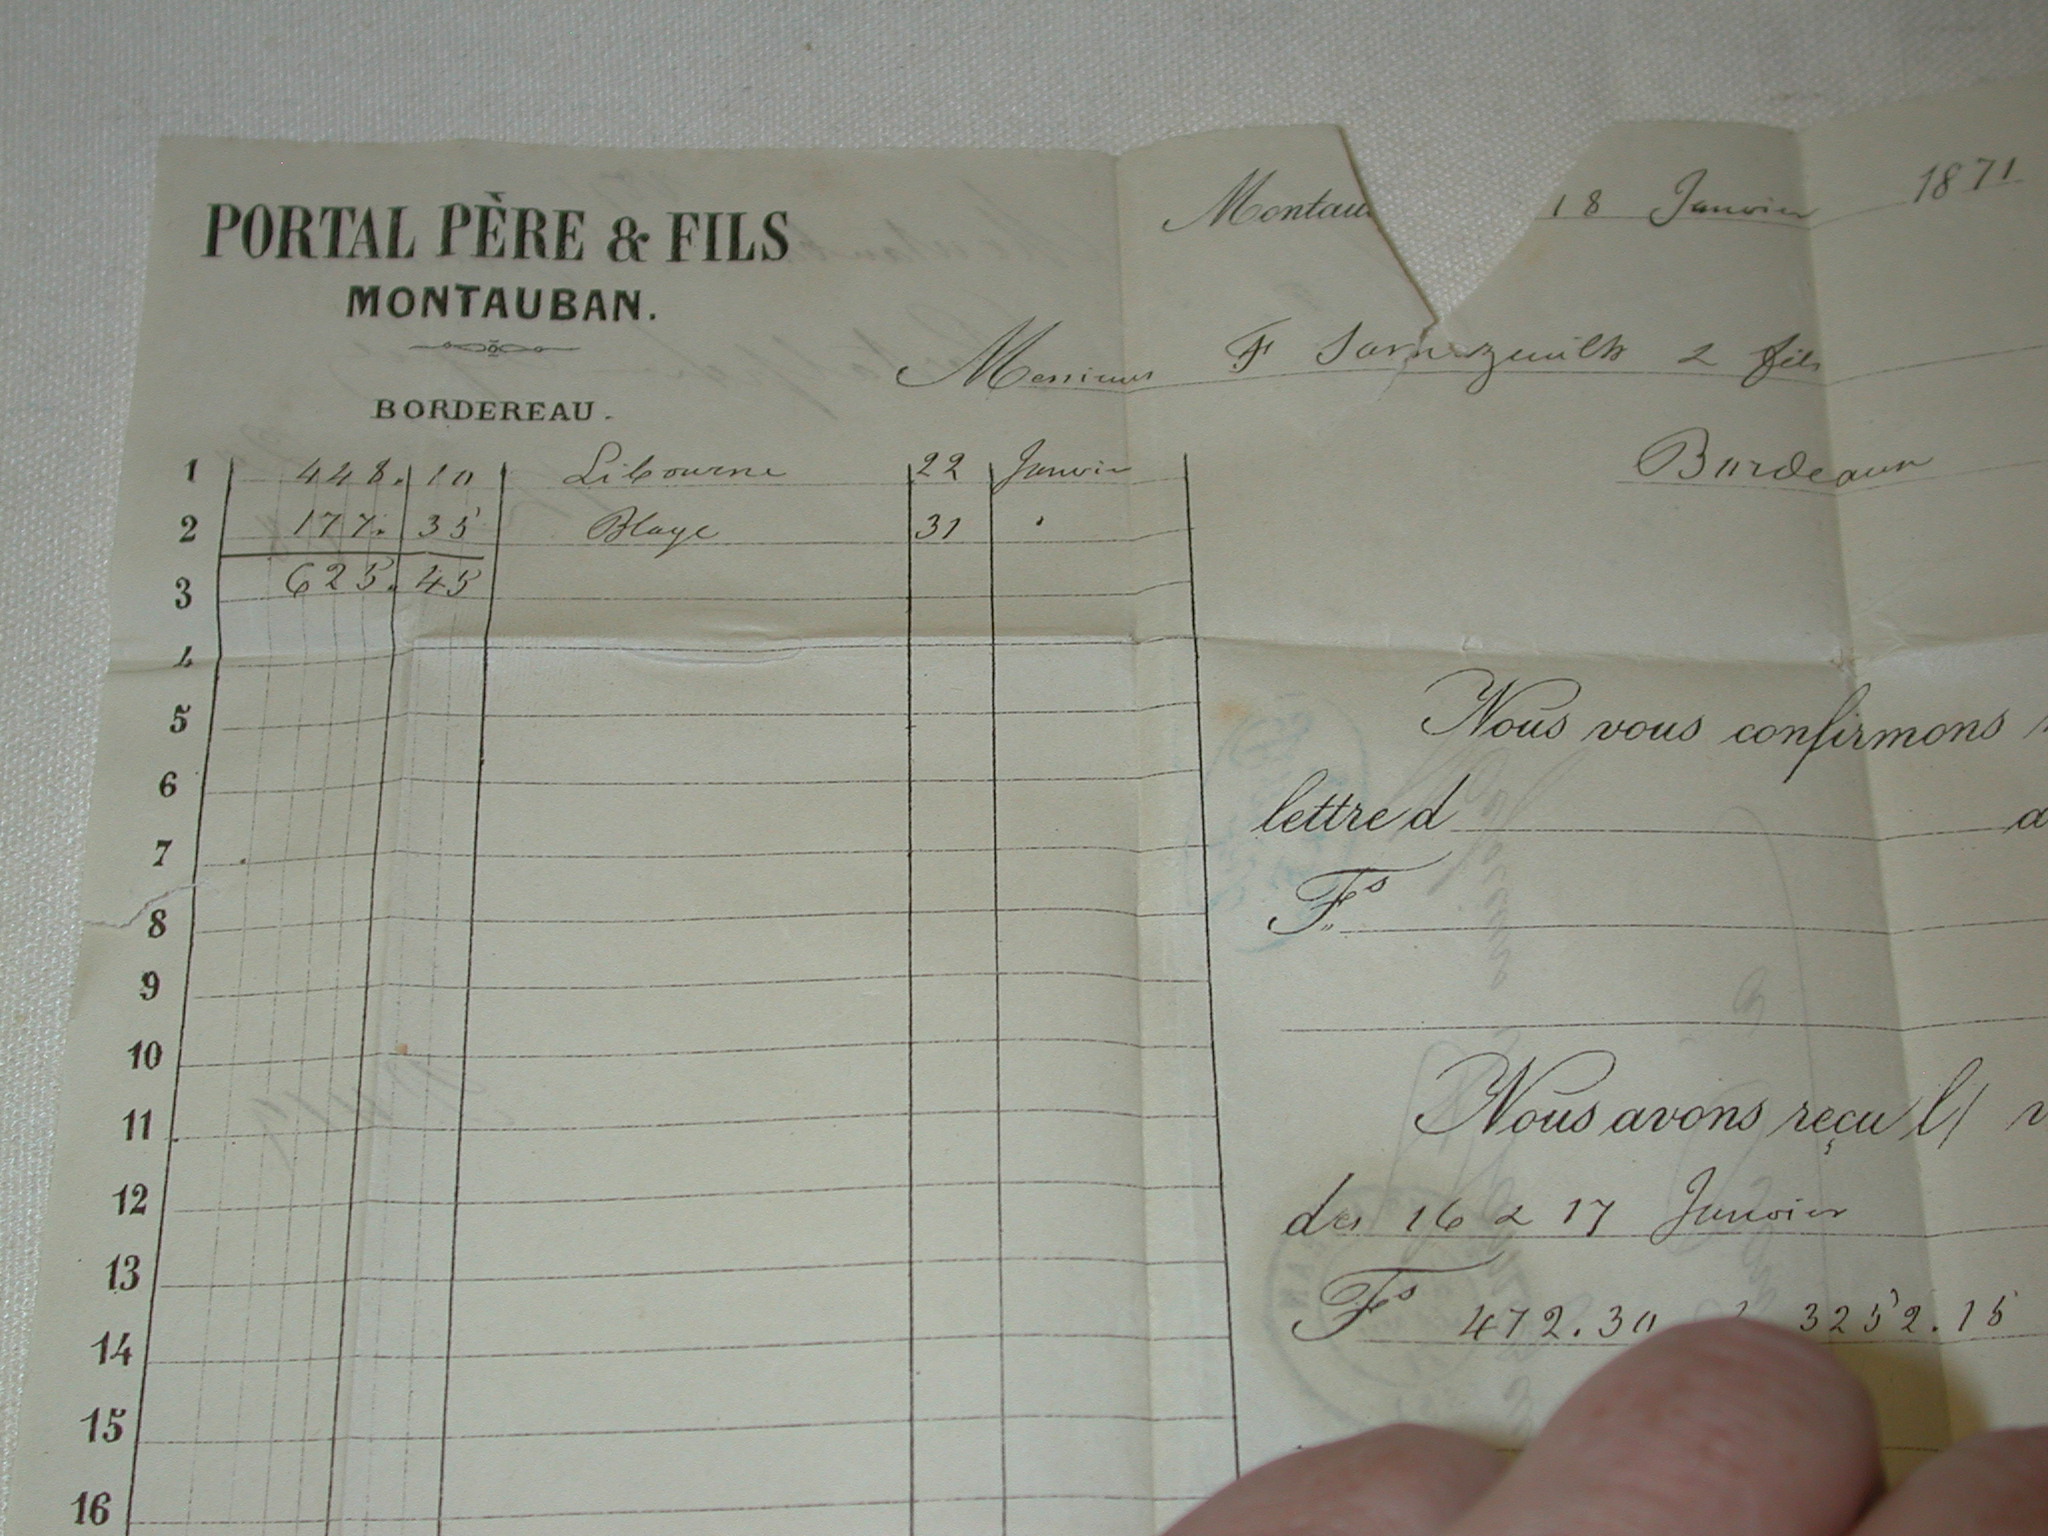 PORTAL PÈRE & FILS
MONTAUBAN.
BORDEREAU.
Montau 18 Janvier 1871
Messieurs F & fils
Bordeaux
1 448. 10 Libourne 22 Janvier
2 177. 35 Blaye 31 "
3 625. 45
4
5
6
7
8
9
10
11
12
13
14
15
16
Nous vous confirmons
lettre d
Fs
Nous avons reçu l/
des 16 & 17 Janvier
Fs 472.30 3252.15